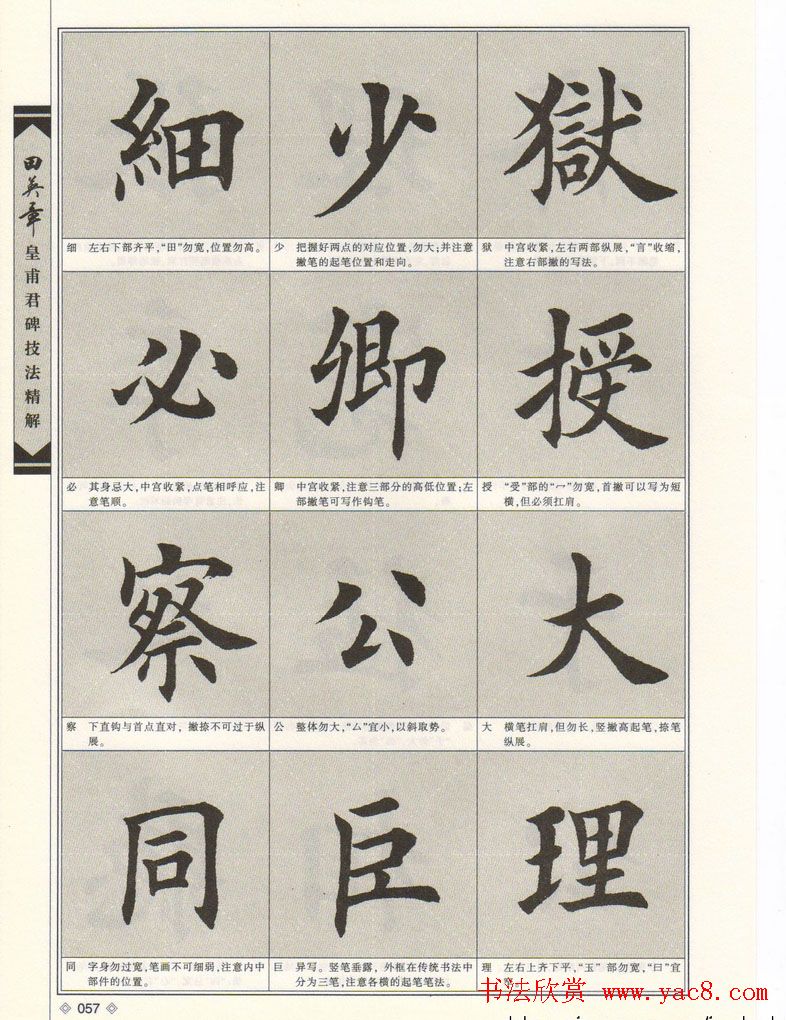 田英章
皇甫君碑技法精解
細
少
獄
细 左右下部齐平,“田”勿宽,位置勿高。
少 把握好两点的对应位置,勿大;并注意
撇笔的起笔位置和走向。
狱 中宫收紧,左右两部纵展,“言”收缩,
注意右部撇的写法。
必
卿
授
必 其身忌大,中宫收紧,点笔相呼应,注
意笔顺。
卿 中宫收紧,注意三部分的高低位置;左
部撇笔可写作钩笔。
授 “受”部的“冖”勿宽,首撇可以写为短
横,但必须扛肩。
察
公
大
察 下直钩与首点直对，撇捺不可过于纵
展。
公 整体勿大,“厶”宜小,以斜取势。
大 横笔扛肩,但勿长,竖撇高起笔,捺笔
纵展。
同
臣
理
同 字身勿过宽,笔画不可细弱,注意内中
部件的位置。
巨 异写。竖笔垂露，外框在传统书法中
分为三笔,注意各横的起笔笔法。
理 左右上齐下平,“玉”部勿宽,“曰”宜
书法欣赏 www.yac8.com
057